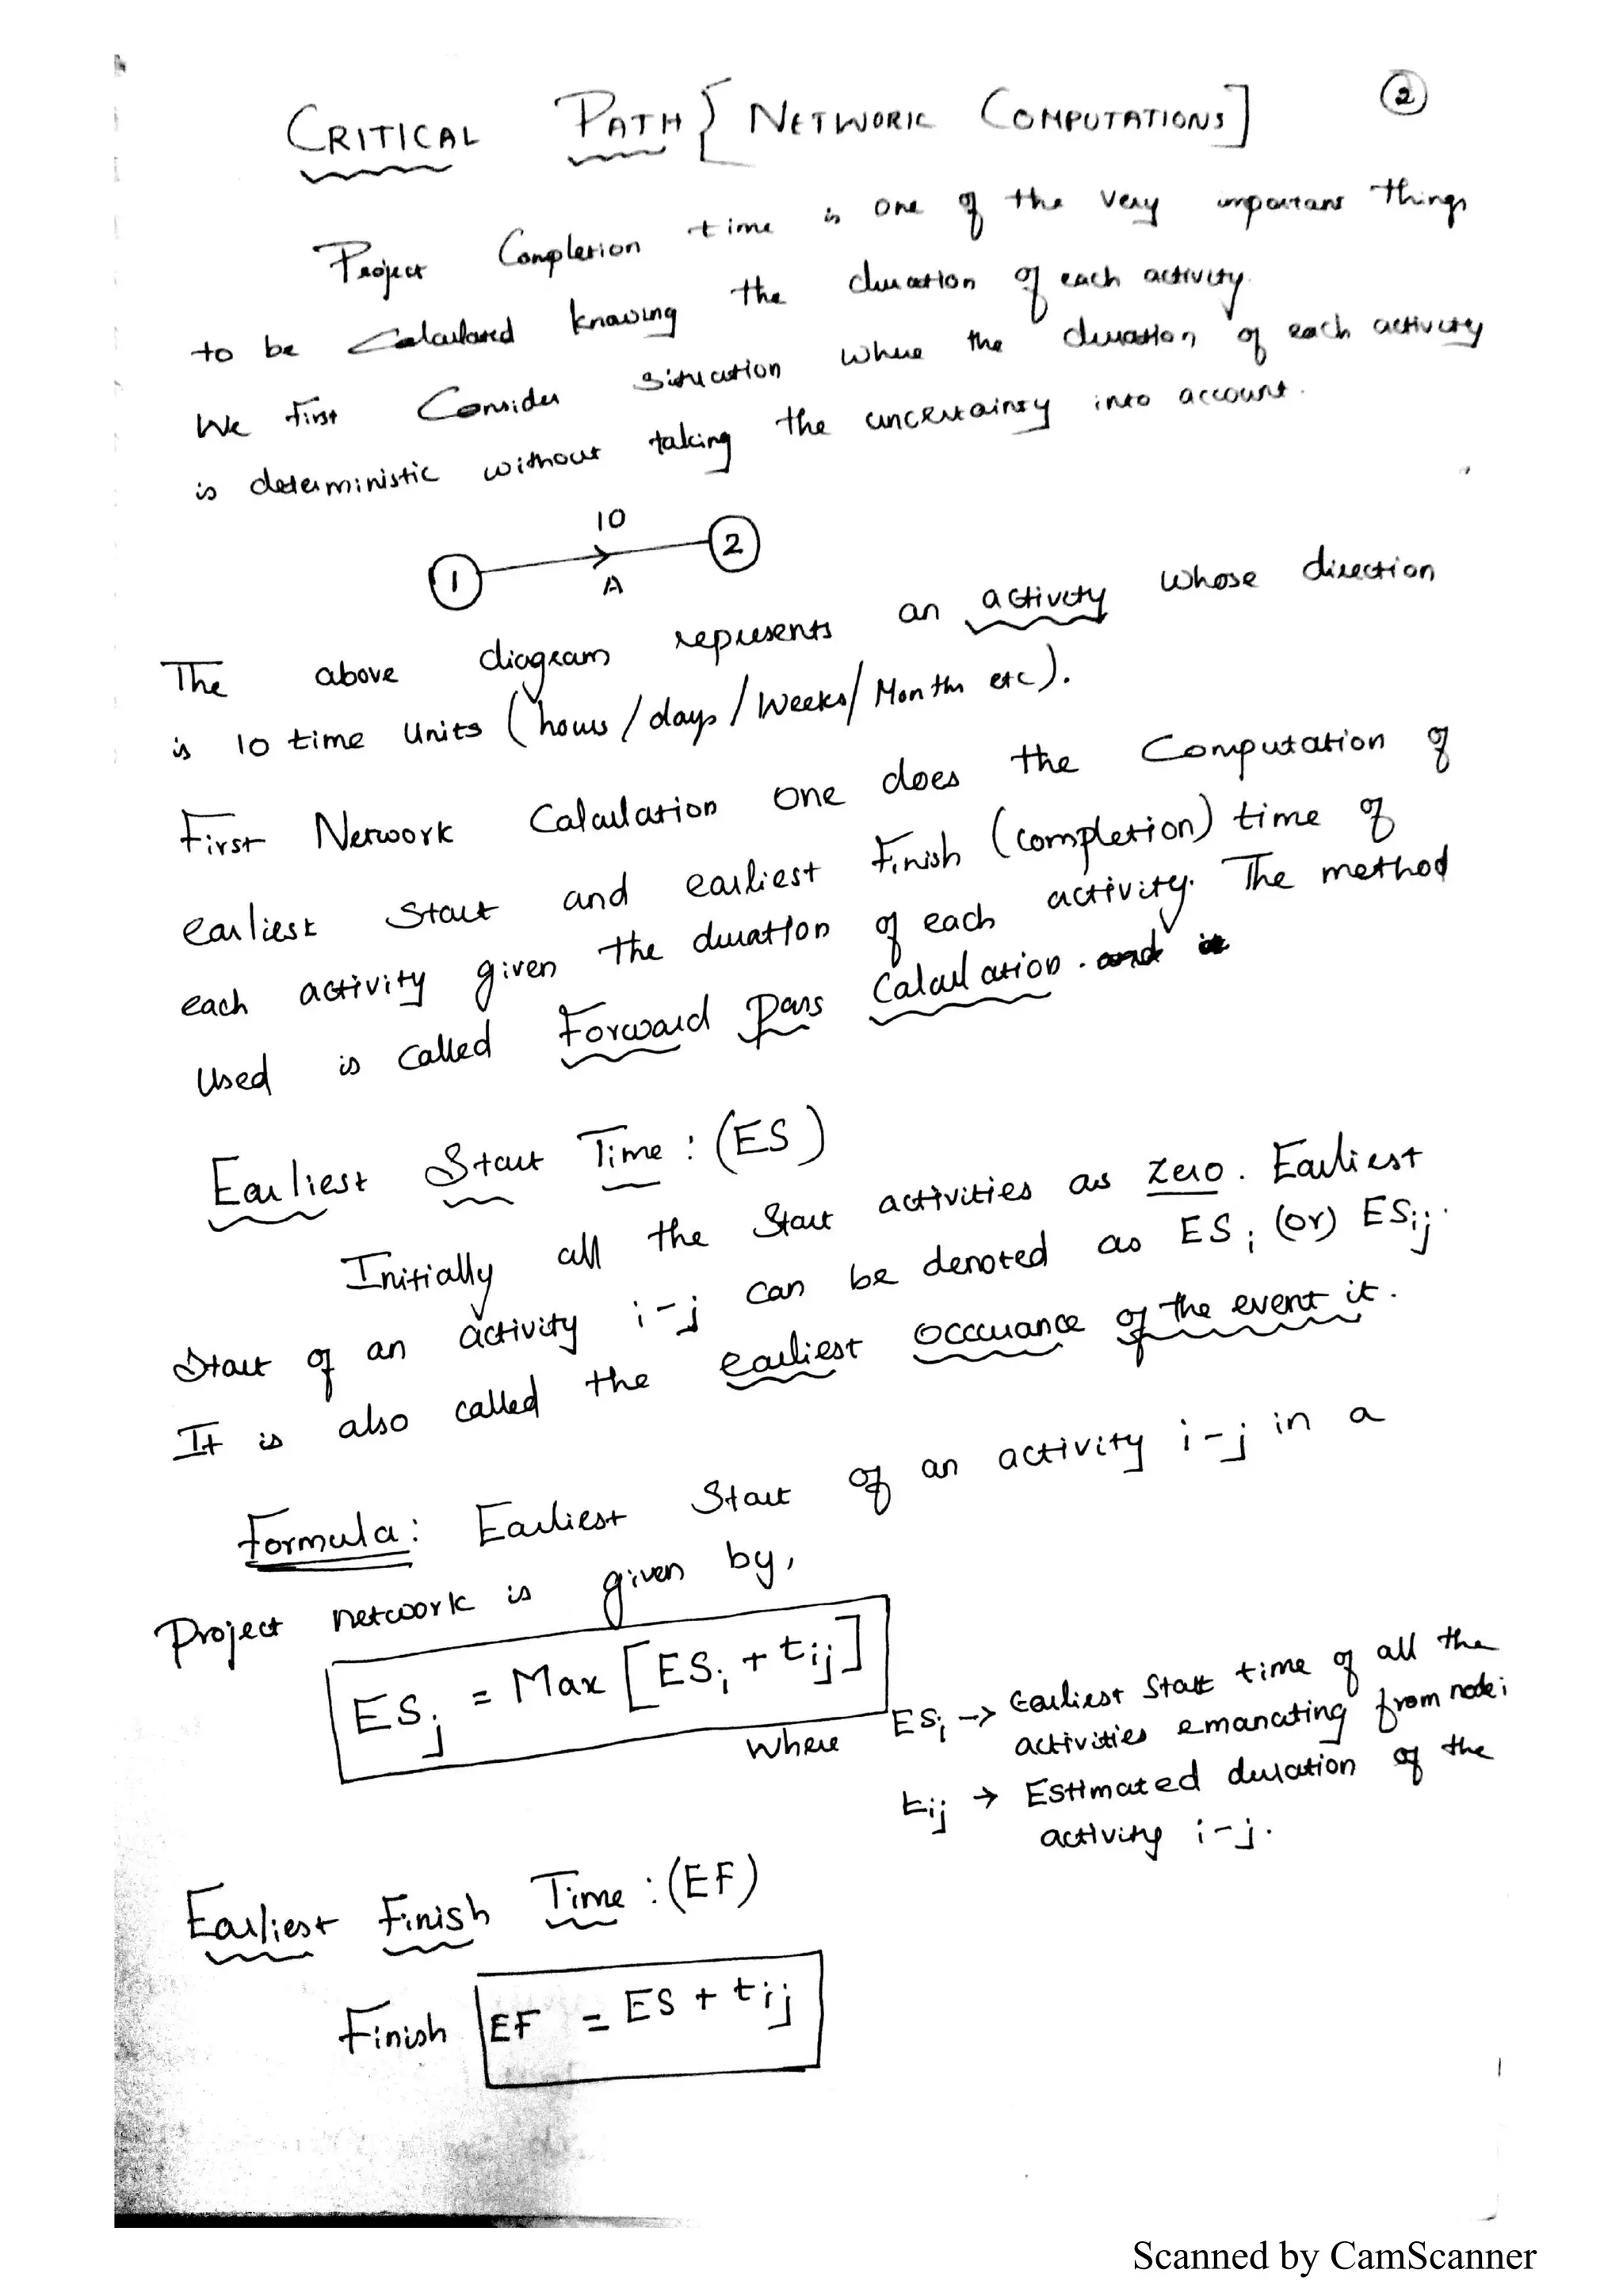 ②
CRITICAL PATH [NETWORK COMPUTATIONS]
Project Completion time is one of the very important things
to be Calculated knowing the duration of each activity.
We first Consider situation where the duration of each activity
is deterministic without taking the uncertainty into account.
10
1 2
A
The above diagram represents an activity whose direction
is 10 time units (hours/days/weeks/Months etc).
First Network Calculation one does the Computation of
earliest start and earliest Finish (completion) time of
each activity given the duration of each activity. The method
used is called Forward pass Calculation.
Earliest Start Time : (ES)
Initially all the start activities as zero. Earliest
Start of an activity i-j can be denoted as ESi (or) ESij.
It is also called the earliest occurance of the event it.
Formula: Earliest Start of an activity i-j in a
Project network is given by,
ESj = Max [ESi + tij]
where ESi → Earliest Start time of all the
activities emanating from node i
tij → Estimated duration of the
activity i-j.
Earliest Finish Time : (EF)
Finish EF = ES + tij
Scanned by CamScanner